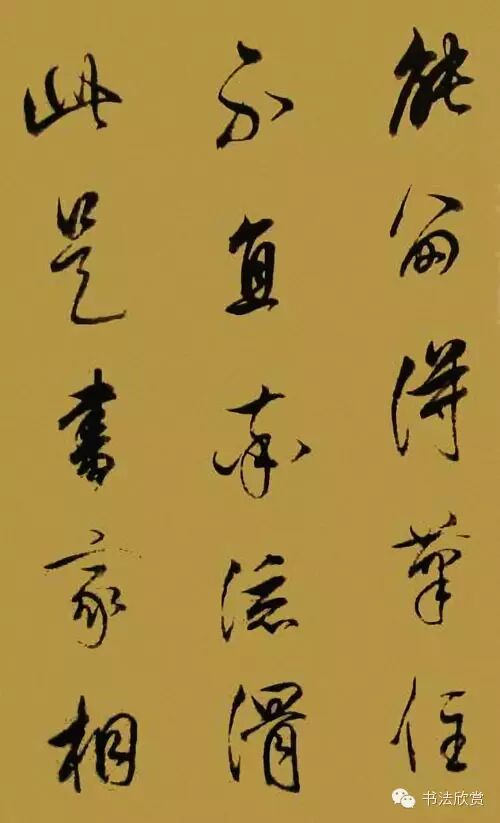 能留得筆住
不直率流滑
此是書家相
书法欣赏